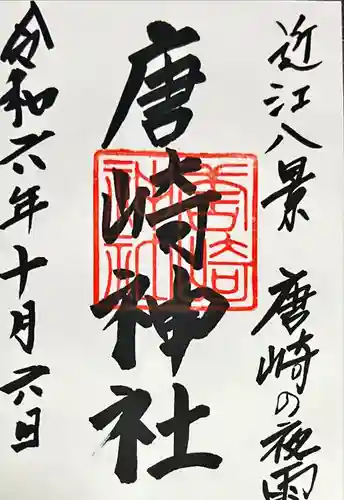 近江八景 唐崎の夜雨
唐崎神社
令和六年十月六日